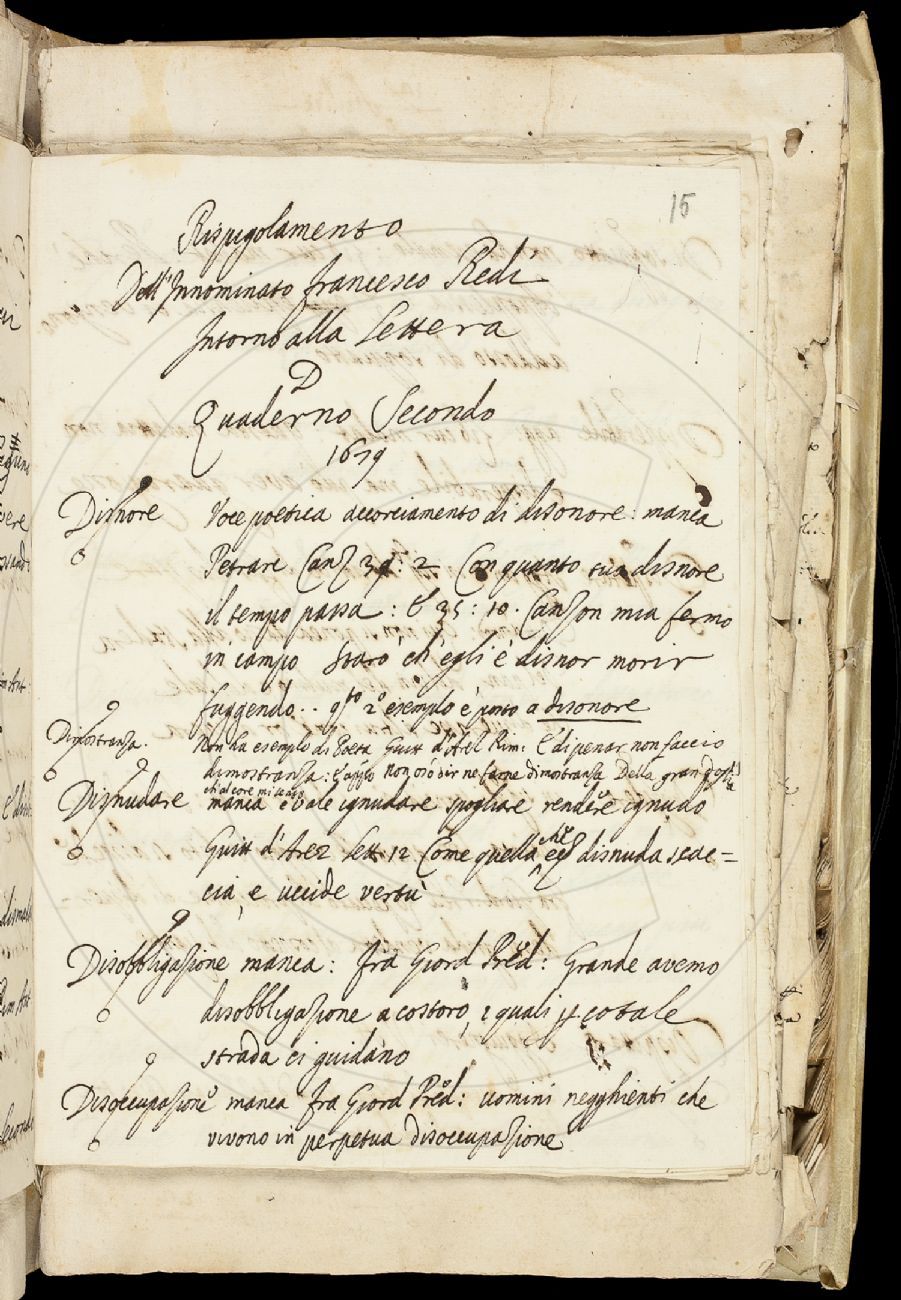 15
Rispigolamento
Dell'Innominato Francesco Redi
Intorno alla Lettera
D
Quaderno Secondo
1679
Disnore Voce poetica accorciamento di disonore: manca
Petrarc Canz 39: 2 Con quanto tuo disnore
il tempo passa: E 35: 10. Canzon mia fermo
in campo Starò ch'egli è disnor morir
fuggendo.. qsto 2o esemplo è posto a disonore
Dimostranza. Non ha esemplo di Poeta Guitt d'Arez Rim: E di penar non faccio
dimostranza: E appo non osò dir ne farne dimostranza Della gran
ch'al core mi
Disnudare manca e vale ignudare spogliare rendere ignudo
Guitt d'Arez Lett 12 Come quella che disnuda scac=
cia, e uccide vertù
Disobbligazione manca: Fra Giord Pred: Grande avemo
disobbligazione a costoro, i quali p cotale
strada ci guidano
Disoccupazione manca Fra Giord Pred: uomini negghienti che
vivono in perpetua disoccupazione